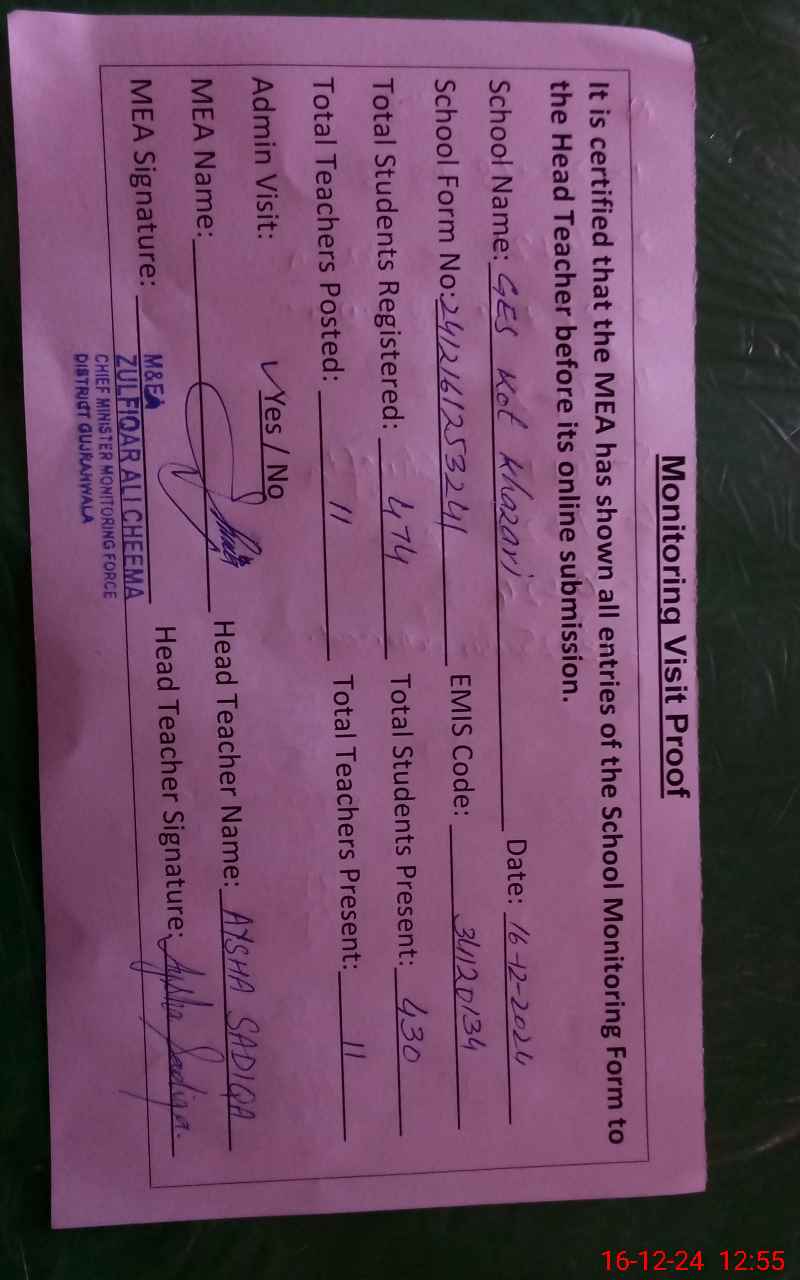 Monitoring Visit Proof
It is certified that the MEA has shown all entries of the School Monitoring Form to
the Head Teacher before its online submission.
School Name: GES Kot Khazari Date: 16-12-2024
School Form No: 2412161253241 EMIS Code: 34120134
Total Students Registered: 474 Total Students Present: 430
Total Teachers Posted: 11 Total Teachers Present: 11
Admin Visit: ✓Yes / No
MEA Name: Head Teacher Name: AYSHA SADIQA
MEA Signature: Head Teacher Signature: Aysha Sadiqa.
M&EA
ZULFIQAR ALI CHEEMA
CHIEF MINISTER MONITORING FORCE
DISTRICT GUJRANWALA
16-12-24 12:55